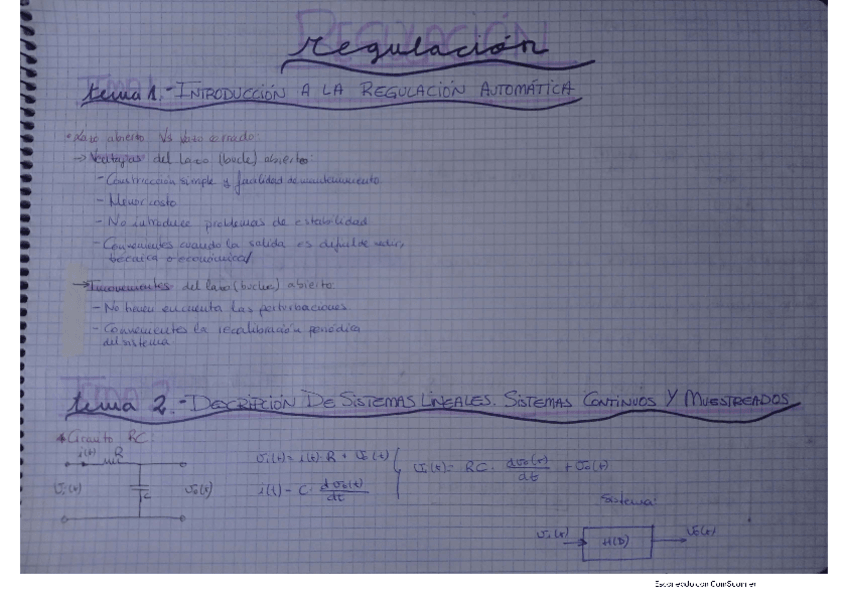 Regulación
tema 1.- INTRODUCCIÓN A LA REGULACIÓN AUTOMÁTICA
• Lazo abierto Vs lazo cerrado:
→ Ventajas del lazo (bucle) abierto:
- Construcción simple y facilidad de mantenimiento
- Menor costo
- No introduce problemas de estabilidad
- Convenientes cuando la salida es difícil de medir,
o económica/
→ Inconvenientes del lazo (bucle) abierto
- No tienen en cuenta las perturbaciones
- Convenientes la recalibración periódica
del sistema
tema 2.- DESCRIPCIÓN DE SISTEMAS LINEALES. SISTEMAS CONTINUOS Y MUESTREADOS
Circuito RC:
i(t) R
Vi(t) C Vo(t)
Vi(t) = i(t)·R + Vo(t)
i(t) = C· dVo(t)/dt
Vi(t) = RC· dVo(t)/dt + Vo(t)
Sistema:
Vi(t) H(D) Vo(t)
Escaneado con CamScanner